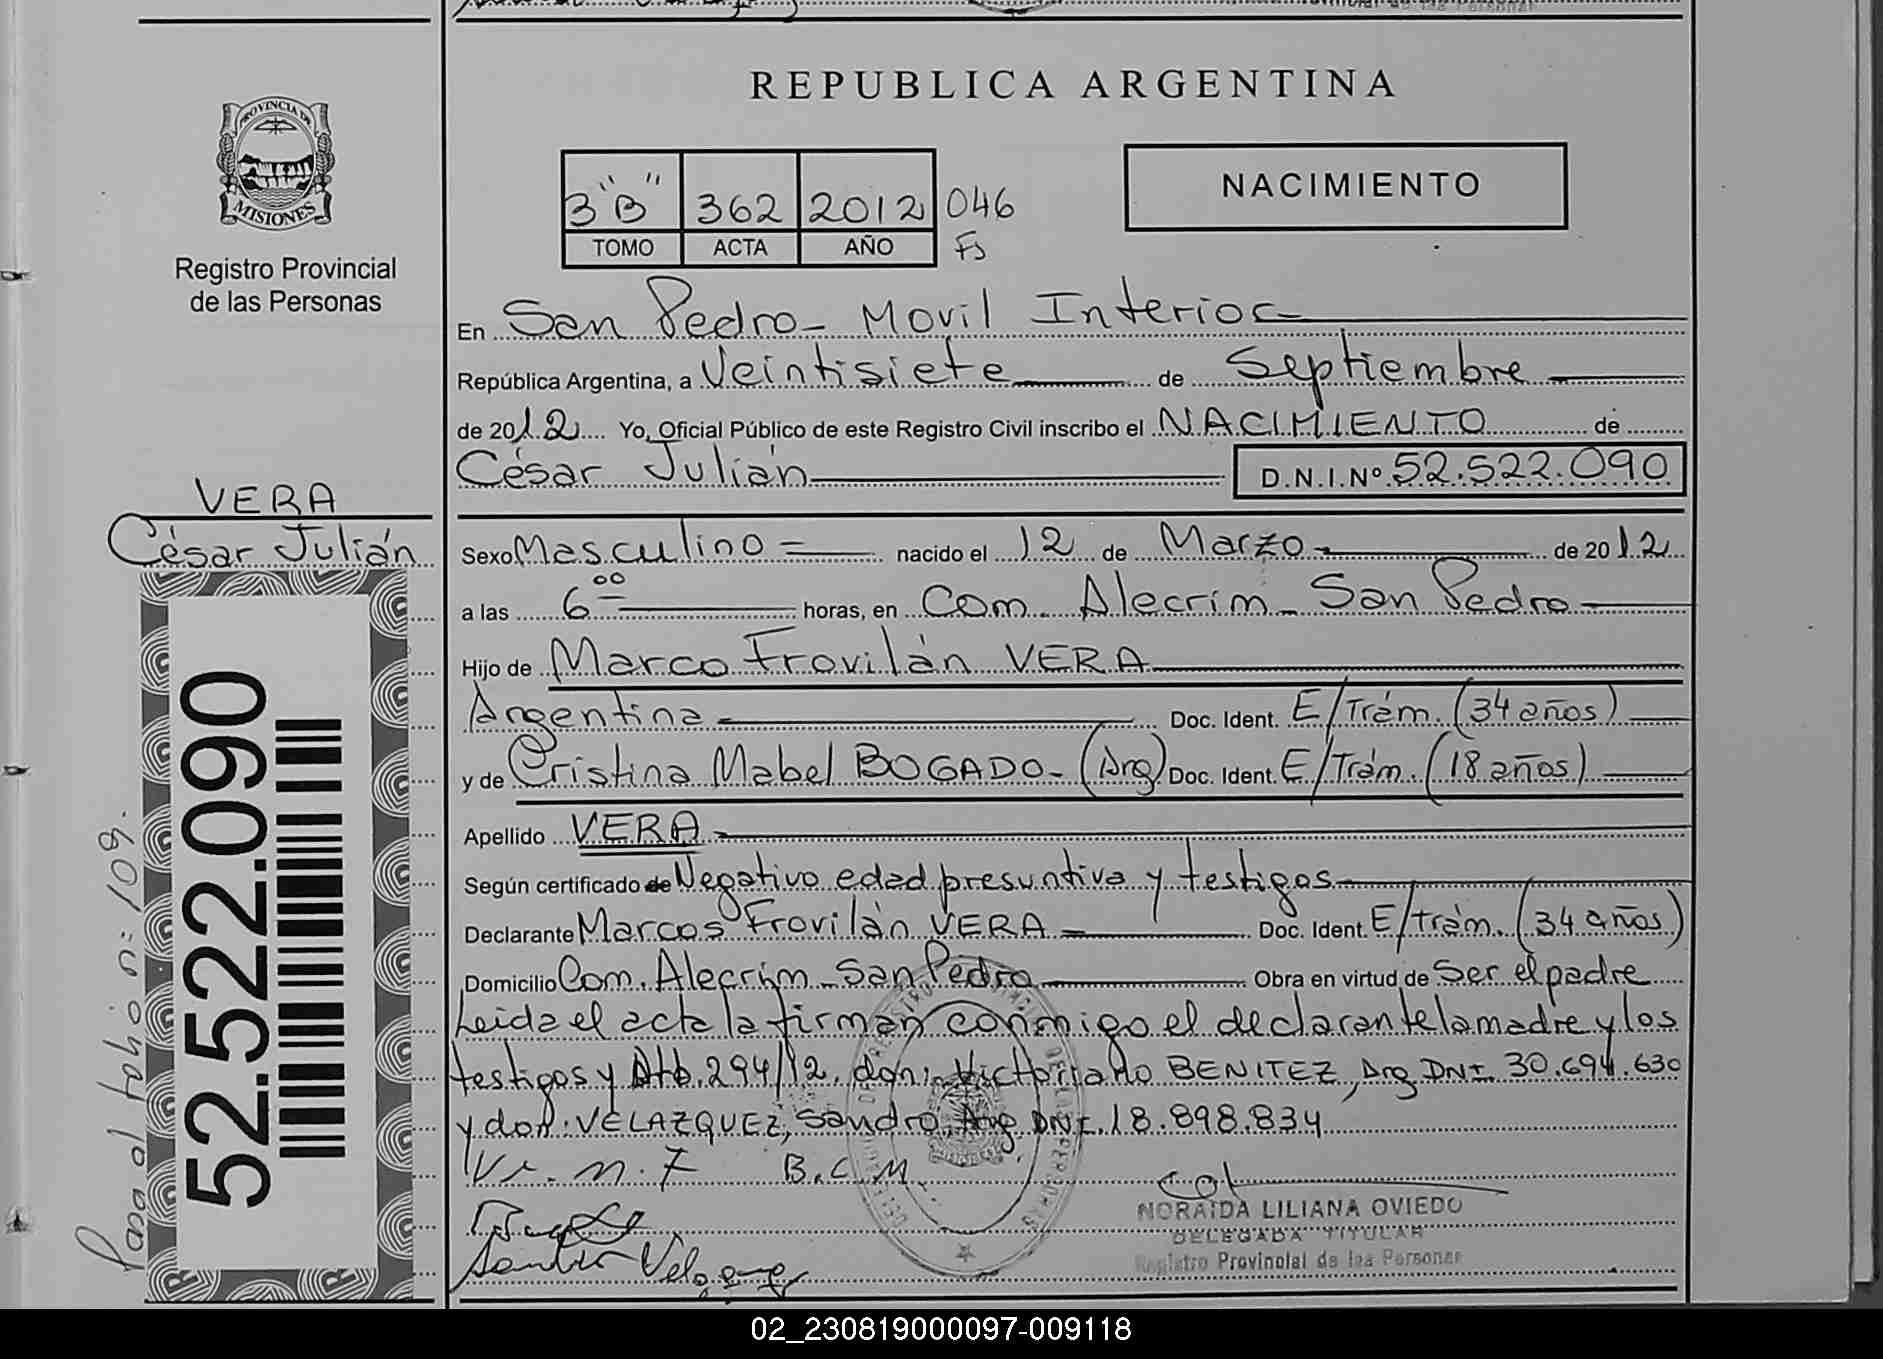 REPUBLICA ARGENTINA
PROVINCIA DE
MISIONES
Registro Provincial
de las Personas
3 "B" 362 2012 046
TOMO ACTA AÑO Fs
NACIMIENTO
En San Pedro - Movil Interior
República Argentina, a Veintisiete de Septiembre
de 2012 Yo, Oficial Público de este Registro Civil inscribo el NACIMIENTO de
César Julián D.N.I.Nº 52.522.090
VERA
César Julián
Sexo Masculino nacido el 12 de Marzo de 2012
a las 6 00 horas, en Com. Alecrim - San Pedro
Hijo de Marco Frovilán VERA
Argentina Doc. Ident. E/Trám. (34 años)
y de Cristina Mabel BOGADO - (Arg) Doc. Ident. E/Trám. (18 años)
Apellido VERA
Según certificado de Negativo edad presuntiva y testigos
Declarante Marcos Frovilán VERA Doc. Ident. E/trám. (34 años)
Domicilio Com. Alecrim - San Pedro Obra en virtud de Ser el padre
Leida el acta la firman conmigo el declarante la madre y los
testigos y Atb. 294/12. don: Victoriano BENITEZ, Arg DNI. 30.694.630
y don: VELAZQUEZ, Sandro, Arg DNI. 18.898.834
B.C.M.
NORAIDA LILIANA OVIEDO
DELEGADA TITULAR
Registro Provincial de las Personas
52.522.090
Pasa al folio n: 109.
02_230819000097-009118